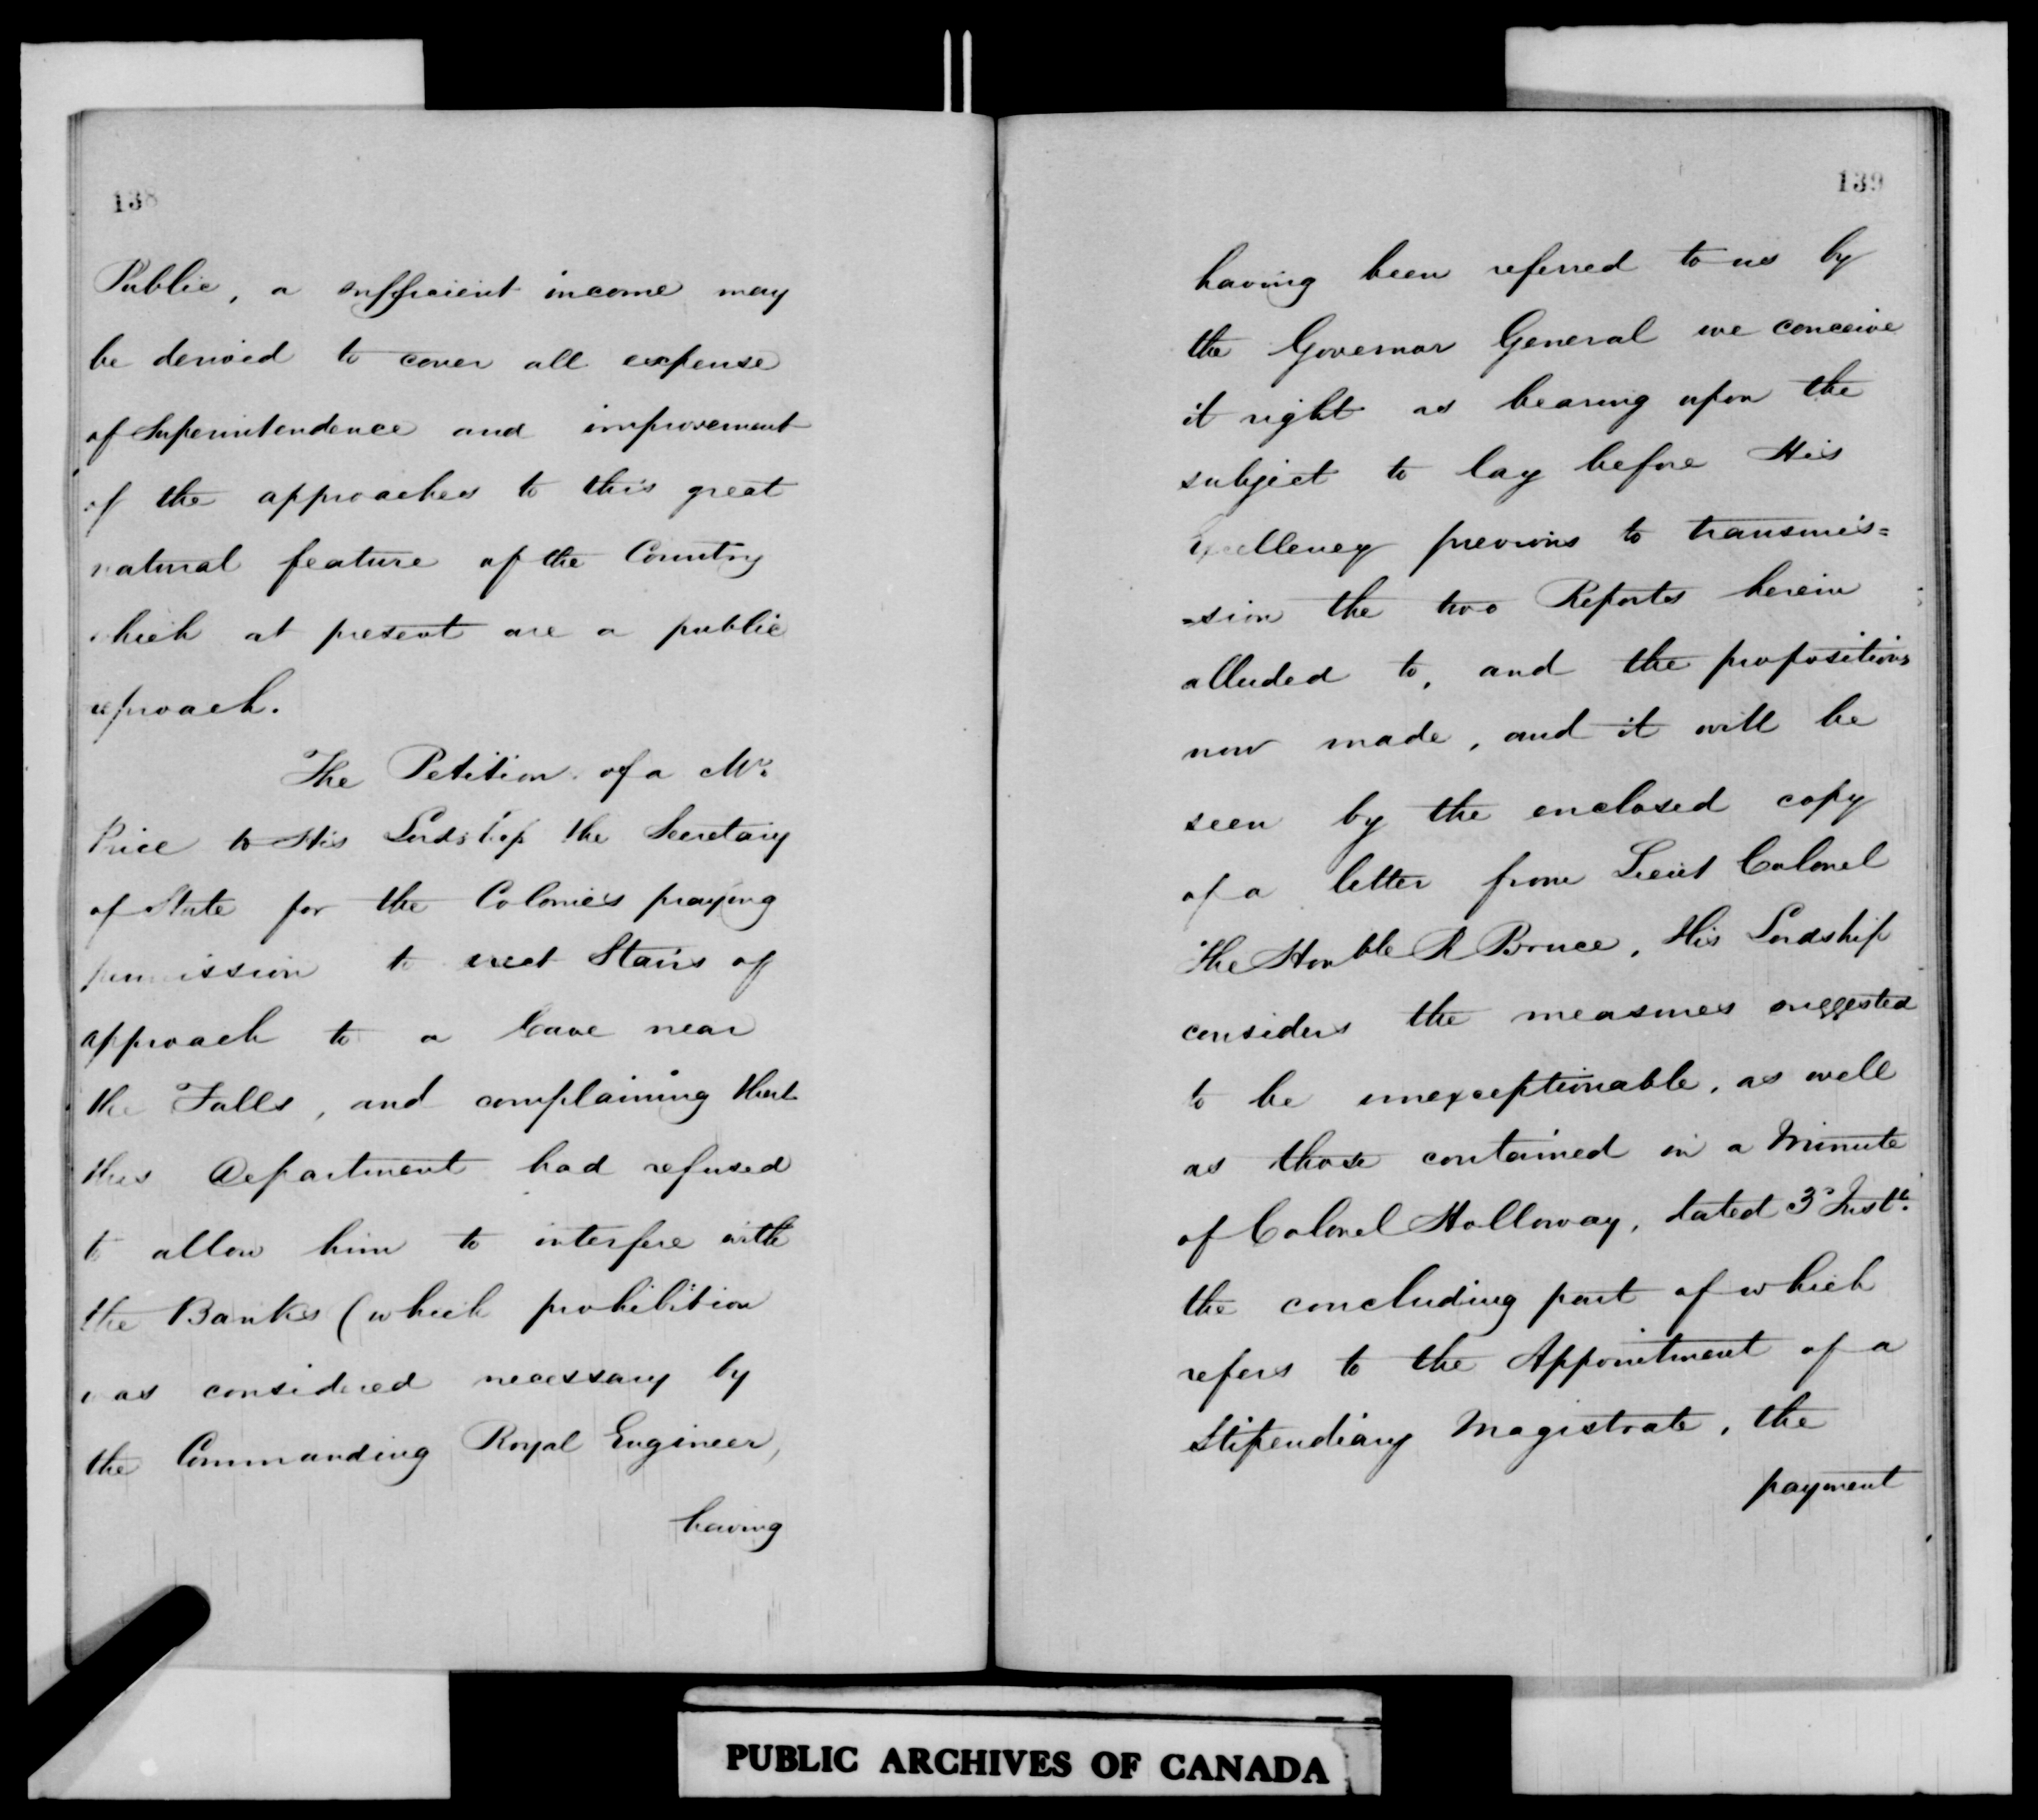 138
Public, a sufficient income may
be derived to cover all expense
of Superintendence and improvement
of the approaches to this great
natural feature of the Country
which at present are a public
reproach.
The Petition of a Mr.
Price to His Lordship the Secretary
of State for the Colonies praying
permission to erect Stairs of
approach to a Cave near
the Falls, and complaining that
this Department had refused
to allow him to interfere with
the Banks (which prohibition
was considered necessary by
the Commanding Royal Engineer,
having
139
having been referred to us by
the Governor General we conceive
it right as bearing upon the
subject to lay before His
Excellency previous to transmis=
=sion the two Reports herein
alluded to, and the propositions
now made, and it will be
seen by the enclosed copy
of a letter from Lieut Colonel
The Honble R Bruce, His Lordship
considers the measures suggested
to be unexceptionable, as well
as those contained in a Minute
of Colonel Holloway, dated 3d Inst.
the concluding part of which
refers to the Appointment of a
Stipendiary Magistrate, the
payment
PUBLIC ARCHIVES OF CANADA